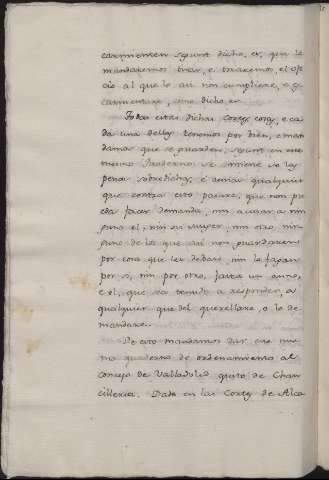 carmienten segunt dicho es, que le
mandaremos tirar, e tiraremos, el ofi-
cio al que lo asi non cumpliere, e es-
carmentare, como dicho es.
Todas estas dichas cosas, e ca-
da una dellas tenemos por bien, e man-
damos que se guarden, segunt en este
mismo Quaderno se contiene so las
penas sobredichas, e demas qualquier
que contra esto pasare, que non pue-
da facer demanda, nin acusar a nin-
guno el, nin su muger, nin otro nin-
guno de los que asi non guardaren
por cosa que les deban, nin le fagan
por si, nin por otro, fasta un anno,
e el, que sea tenudo a responder, a
qualquier que del querellare, o lo de-
mandare.
De esto mandamos dar este mis-
mo quaderno de ordenamiento al
Concejo de Valladolid quito de Chan-
cilleria. Dado en las Cortes de Alca